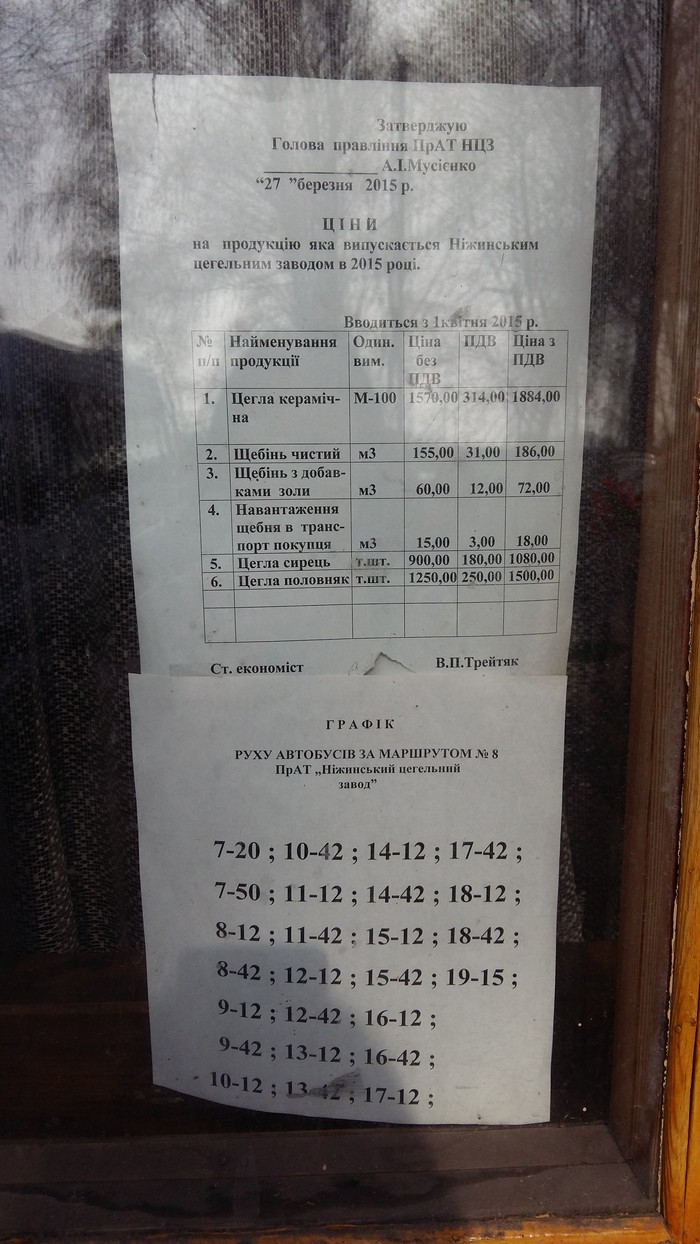 Затверджую
Голова правління ПрАТ НЦЗ
____________ А.І.Мусієнко
“27 ”березня 2015 р.
Ц І Н И
на продукцію яка випускається Ніжинським
цегельним заводом в 2015 році.
Вводиться з 1квітня 2015 р.
№ п/п Найменування продукції Один. вим. Ціна без ПДВ ПДВ Ціна з ПДВ
1. Цегла кераміч-на М-100 1570,00 314,00 1884,00
2. Щебінь чистий м3 155,00 31,00 186,00
3. Щебінь з добав-ками золи м3 60,00 12,00 72,00
4. Навантаження щебня в транс-порт покупця м3 15,00 3,00 18,00
5. Цегла сирець т.шт. 900,00 180,00 1080,00
6. Цегла половняк т.шт. 1250,00 250,00 1500,00
Ст. економіст В.П.Трейтяк
Г Р А Ф І К
РУХУ АВТОБУСІВ ЗА МАРШРУТОМ № 8
ПрАТ „Ніжинський цегельний
завод”
7-20 ; 10-42 ; 14-12 ; 17-42 ;
7-50 ; 11-12 ; 14-42 ; 18-12 ;
8-12 ; 11-42 ; 15-12 ; 18-42 ;
8-42 ; 12-12 ; 15-42 ; 19-15 ;
9-12 ; 12-42 ; 16-12 ;
9-42 ; 13-12 ; 16-42 ;
10-12 ; 13-42 ; 17-12 ;